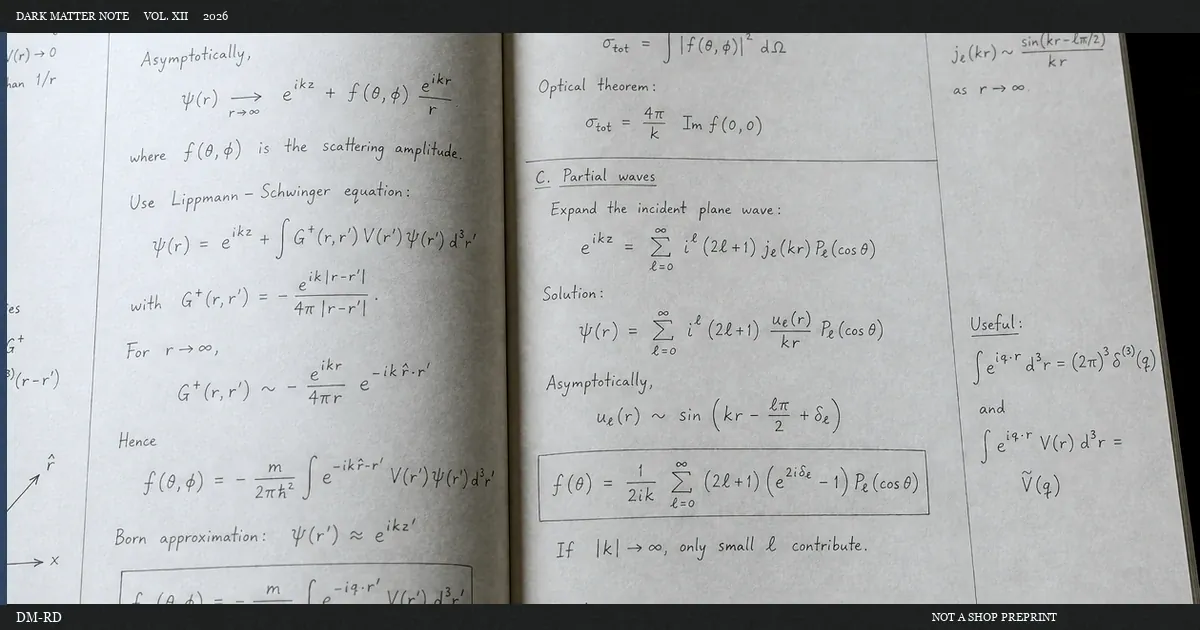 DARK MATTER NOTE VOL. XII 2026
V(r) → 0
than 1/r
G⁺
(r−r')
r̂
x
Asymptotically,
ψ(r) ⟶_{r→∞} e^{ikz} + f(θ,ϕ) e^{ikr}/r
where f(θ,ϕ) is the scattering amplitude.
Use Lippmann – Schwinger equation:
ψ(r) = e^{ikz} + ∫ G⁺(r,r') V(r') ψ(r') d³r'
with G⁺(r,r') = − e^{ik|r−r'|}/(4π |r−r'|) .
For r → ∞,
G⁺(r,r') ~ − e^{ikr}/(4πr) e^{−ik r̂·r'}
Hence
f(θ,ϕ) = − m/(2πħ²) ∫ e^{−ik r̂−r'} V(r') ψ(r') d³r'
Born approximation: ψ(r') ≈ e^{ikz'}
f(θ,ϕ) = − m ∫ e^{−iq·r'} V(r') d³r'
σ_tot = ∫ |f(θ,ϕ)|² dΩ
Optical theorem:
σ_tot = 4π/k Im f(0,0)
C. Partial waves
Expand the incident plane wave:
e^{ikz} = ∑_{ℓ=0}^{∞} i^ℓ (2ℓ+1) j_ℓ(kr) P_ℓ(cos θ)
Solution:
ψ(r) = ∑_{ℓ=0}^{∞} i^ℓ (2ℓ+1) u_ℓ(r)/kr P_ℓ(cos θ)
Asymptotically,
u_ℓ(r) ~ sin (kr − ℓπ/2 + δ_ℓ)
f(θ) = 1/(2ik) ∑_{ℓ=0}^{∞} (2ℓ+1) (e^{2iδ_ℓ} − 1) P_ℓ(cos θ)
If |k| → ∞, only small ℓ contribute.
j_ℓ(kr) ~ sin(kr−ℓπ/2)/kr
as r → ∞
Useful:
∫ e^{iq·r} d³r = (2π)³ δ^{(3)}(q)
and
∫ e^{iq·r} V(r) d³r =
Ṽ(q)
DM-RD
NOT A SHOP PREPRINT